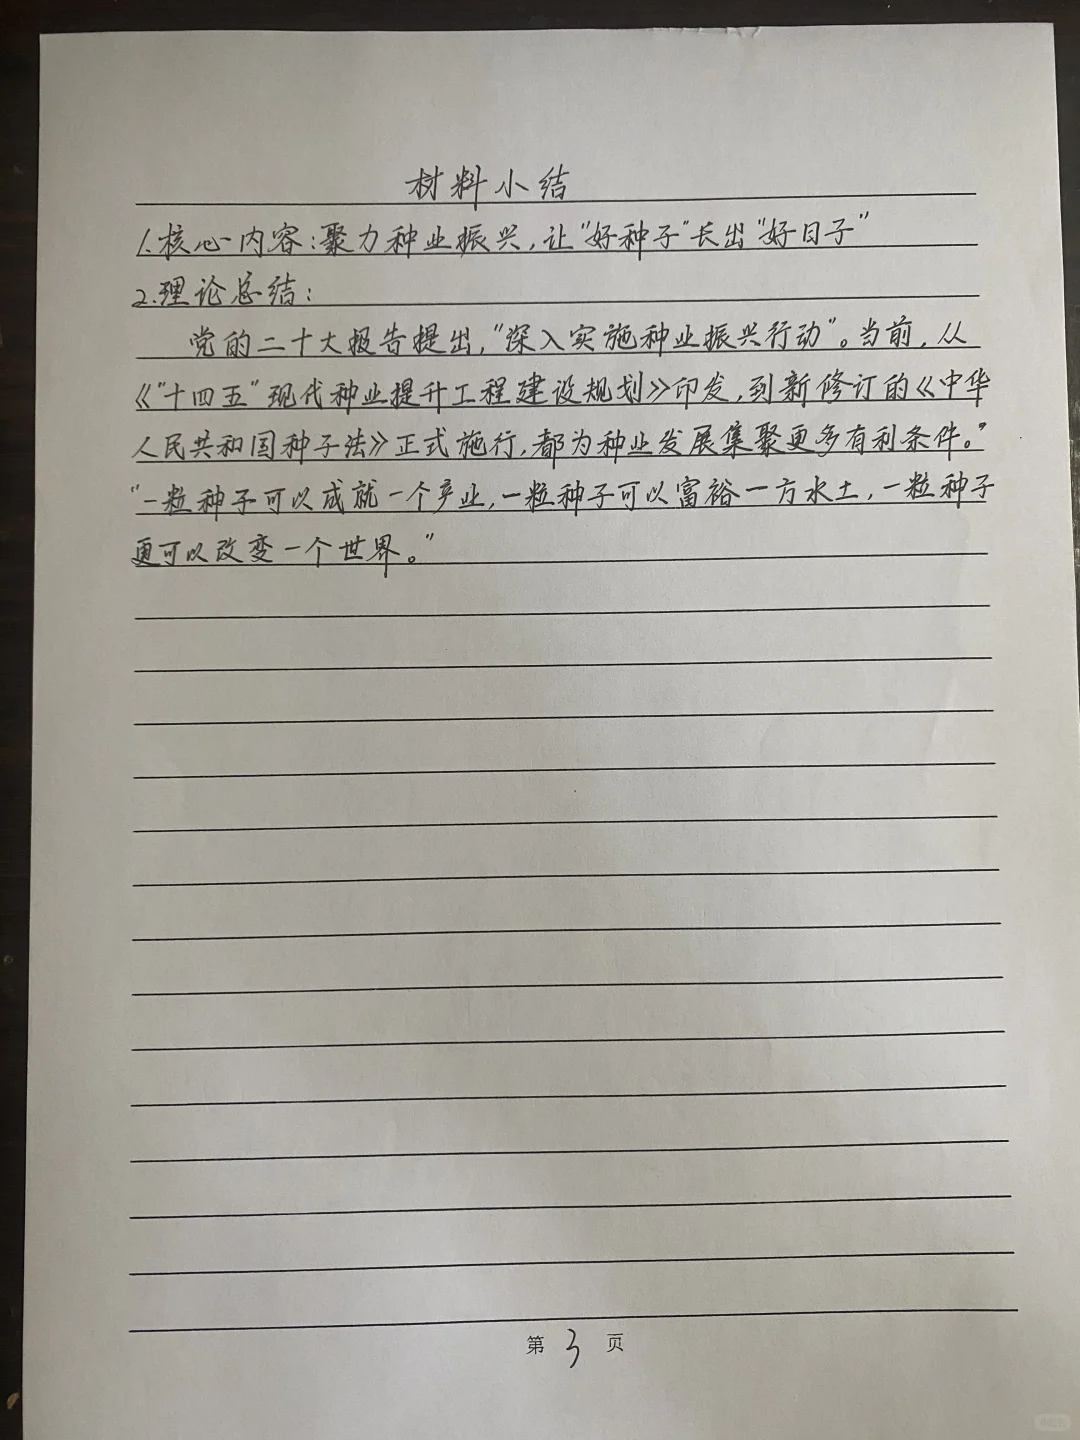 材料小结
1.核心内容：聚力种业振兴，让“好种子”长出“好日子”
2.理论总结：
党的二十大报告提出，“深入实施种业振兴行动”。当前，从
《“十四五”现代种业提升工程建设规划》印发，到新修订的《中华
人民共和国种子法》正式施行，都为种业发展集聚更多有利条件。”
“一粒种子可以成就一个产业，一粒种子可以富裕一方水土，一粒种子
更可以改变一个世界。”
第 3 页